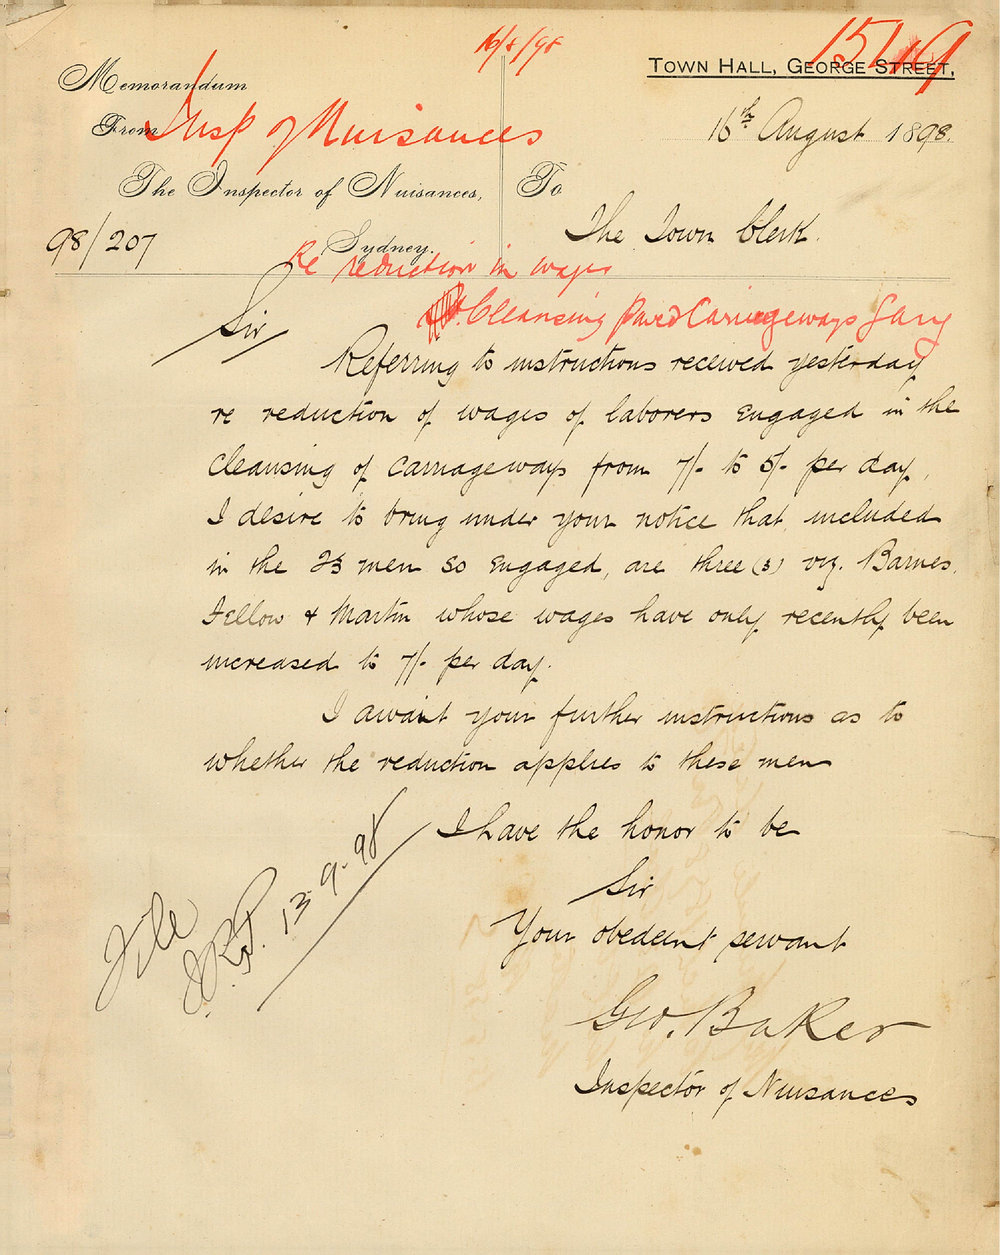 16/8/98
TOWN HALL, GEORGE STREET,
Memorandum
From
Insp of Nuisances
16th August 1898.
The Inspector of Nuisances,
To
98/207
Sydney.
The Town Clerk.
Re reduction in wages
Cleansing Paved Carriageways
Sir
Referring to instructions received yesterday
re reduction of wages of laborers engaged in the
cleansing of carriageways from 7/- to 5/- per day,
I desire to bring under your notice that included
in the 23 men so engaged, are three (3) viz. Barnes,
Fellow & Martin whose wages have only recently been
increased to 7/- per day.
I await your further instructions as to
whether the reduction applies to these men
I have the honor to be
Sir
Your obedient servant
Geo. Baker
Inspector of Nuisances
File
13-9-98